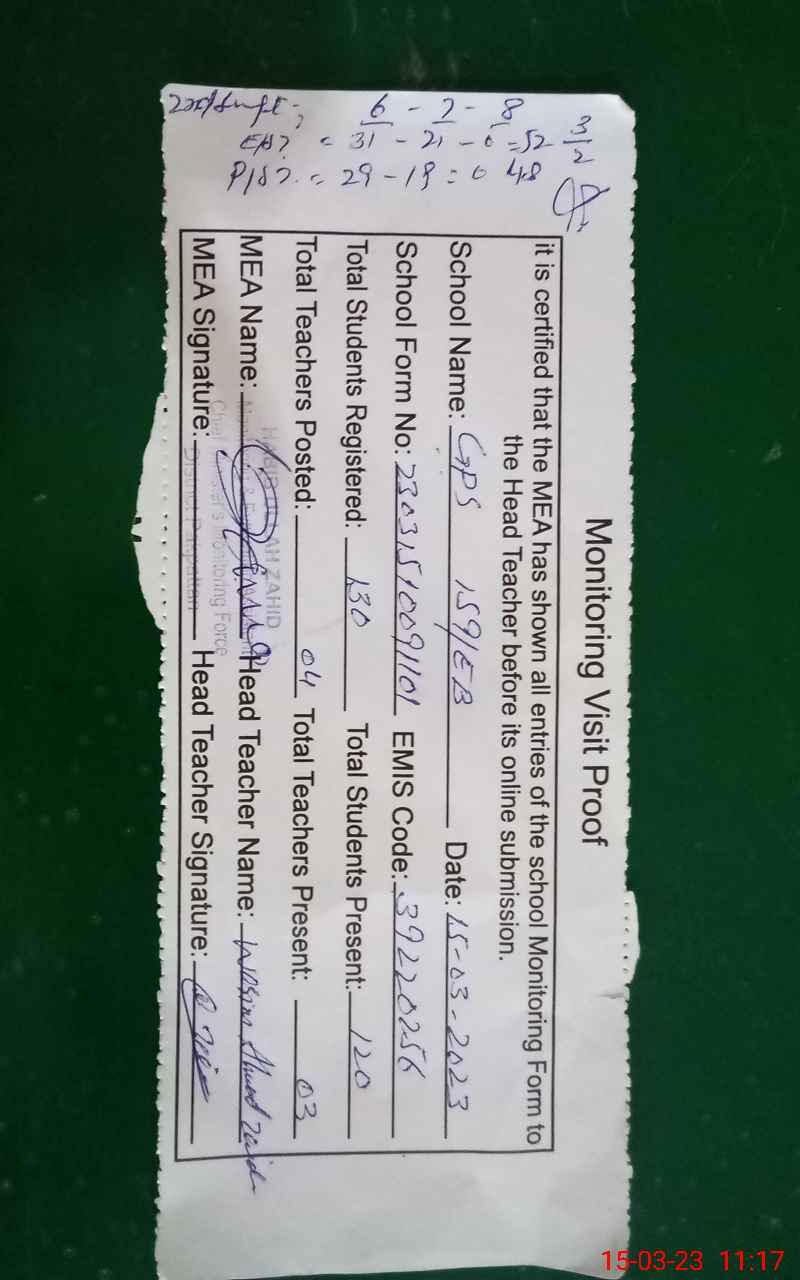 2nd shift: 6 - 7 - 8 3/2
= 31 - 21 - 0 = 52
= 29 - 19 = 0 48
Monitoring Visit Proof
it is certified that the MEA has shown all entries of the school Monitoring Form to
the Head Teacher before its online submission.
School Name: GPS 159/EB Date: 15-03-2023
School Form No: 23031510091101 EMIS Code: 39220256
Total Students Registered: 130 Total Students Present: 120
Total Teachers Posted: 04 Total Teachers Present: 03
MEA Name: Head Teacher Name: Wasim Ahmad Zaid
MEA Signature: Head Teacher Signature:
ZAHID
Chief Minister's Monitoring Force
District Pakpattan
15-03-23 11:17